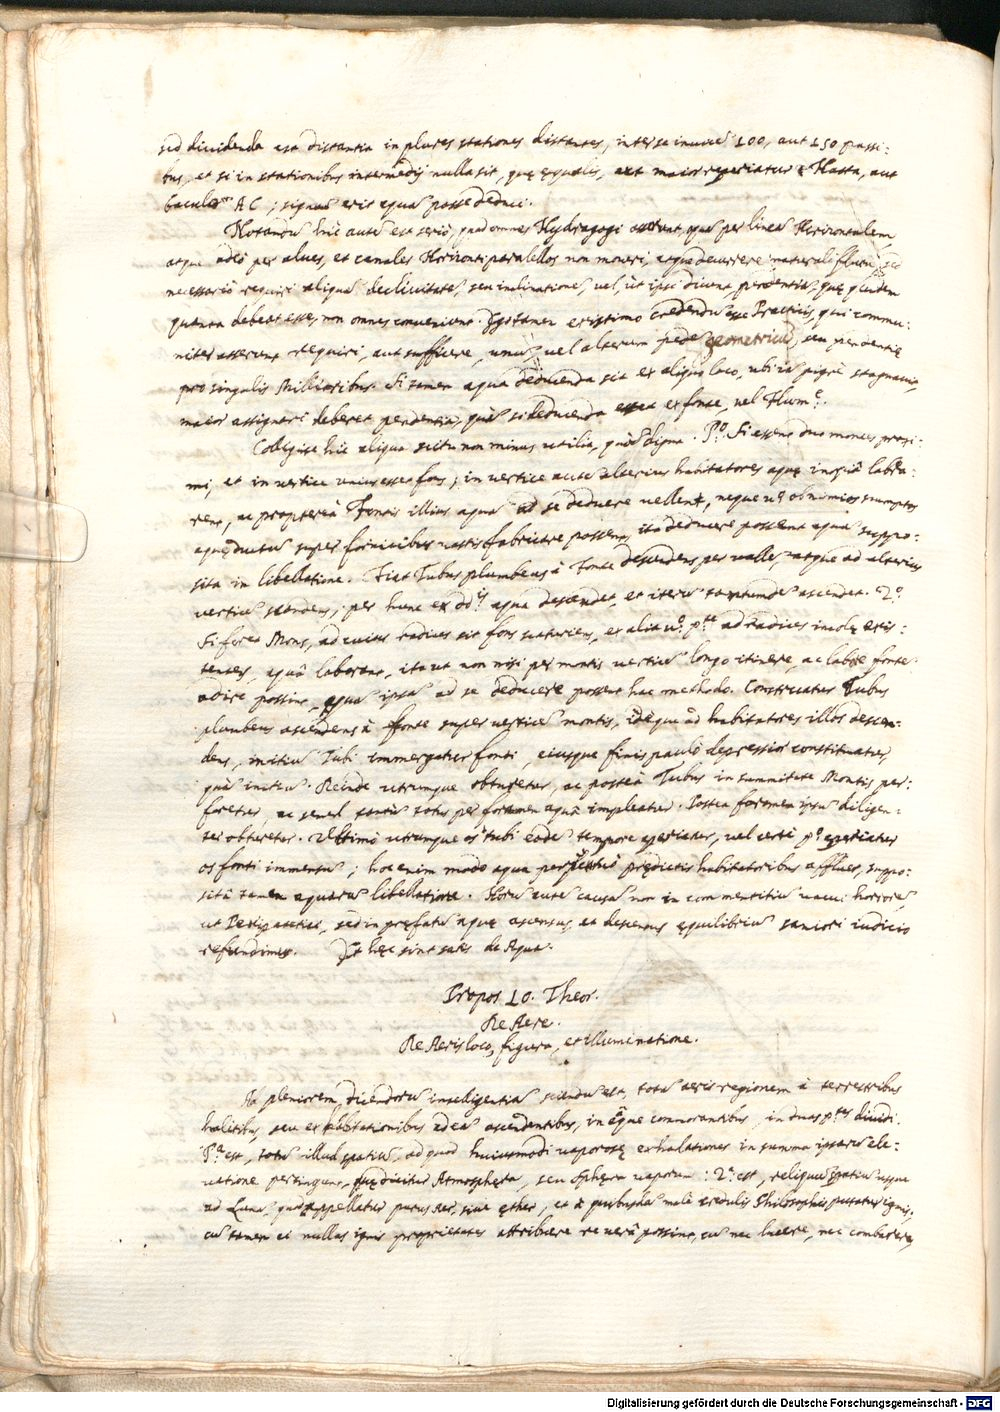 sed dividenda est distantia in plures stationes distantes, inter se invicē 100, aut 150 passi:
bus, et si in stationibus intermedijs nulla sit, quę ęqualis, aut maior reperiatur Hasta, aut
baculo AC; signū erit aquā posse deduci.
Notandū hic autē est seriò, quod omnes Hydragogi asserunt, aquā per lineā Horizontalem
atque adeò per alveos, et canales Horizonti parallelos non moveri, neque decurrere naturali fluxu, sed
necessariò requiri aliquā declivitatē, seu inclinationē, vel, ut ipsi dicunt, pendentiā, quę quidem
quanta debeat esse, non omnes conveniunt. Ego tamen existimo credendū esse Practicis, qui commu:
niter asserunt requiri, aut sufficere, unū, vel alterum pedē geometricū, seu pendentię
pro singulis Milliaribus. Si tamen aqua deducenda sit ex aliquo loco, ubi iā pigrè stagnavit,
maior assignari deberet pendentia, quàm si deducenda esset ex fonte, vel Flum.ᵉ
Collegisse hic aliqua scitu non minus utilia, quàm digna. P.º Si essent duo montes proxi:
mi, et in vertice unius esset fons; in vertice autē alterius habitatores aquę inopiā labora:
rent, ac propterea Fontis illius aquā ad se deducere vellent, neque v.º ob nimios sumptus
aquęductū super fornicibus vastis fabricare possent, ita deducere possent aquā suppo:
sita in libellatione. Fiat Tubus plumbeus à Fonte descendens per valle, atque ad alterius
verticē scandens; per hunc ex dd.ⁱˢ aqua descendet, et iterū tantundē ascendet. 2.º
Si foret Mons, ad cuius radices sit fons scaturiens, ex alia v.º p.ᵗᵉ ad radices incolę exis:
tentes, aquā laborent, ita ut non nisi per montis verticē longo itinere, ac labore fonte
adire possint, aquā ipsā ad se deducere possent hac methodo. Construatur Tubus
plumbeus ascendens à fonte super verticē montis, indeque ad habitatores illos descen-
dens, initiū Tubi immergatur fonti, eiusque finis paulò depressior constituatur,
quàm initiū. Deinde utrumque obturetur, ac posteà Tubus in summitate Montis per:
foretur, ac semel totus per foramen aquā impleatur. Postea foramen ipsū diligen:
ter obturetur. Ultimò utrumque os tubi eodē tempore aperiatur, vel certè p.º aperiatur
os fonti immersū; hoc enim modo aqua perpetuò prędictis habitatoribus affluet, suppo:
sitâ tamen aquarū libellatione. Horū autē causā non in commentitiū vacui horrorē
ut Peripatetici, sed in pręfatū aquę ascensus, et descensus ęquilibriū saniori iudicio
refundimus. Et hęc sint satis de Aqua.
Propos 10. Theor.
De Aere.
De Aeris loco, figura, et illuminatione.
Ad pleniorem dicendorū intelligentiā sciendū est, totā aeris regionem à terrestribus
halitibus, seu exhalationibus ad eā ascendentibus, in eaque commorantibus, in duas p.ᵗᵉˢ dividi.
P.ᵃ est, totū illud spatiū, ad quod huiusmodi vaporosę exhalationes in summa ipsarū ele:
vatione pertingunt, quę dicitur Atmosphęra, seu Sphęra vaporum: 2.ᵃ est, reliquū spatiū usque
ad Lunā, quod appellatur purus aer, sive ęther, et à quibusdā malè credulis Philosophis putatur ignis,
cū tamen ei nullas ignis proprietates attribuere re verâ possint, cū nec lucere, nec comburere,